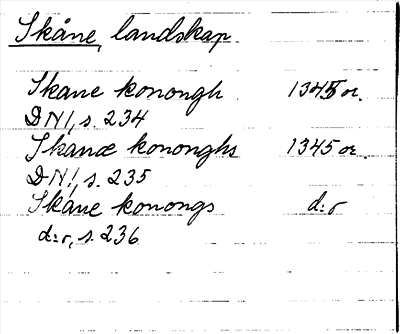 Skåne, landskap
Skane konongh 1345 or.
DN 1, s. 234
Skanæ kononghs 1345 or.
DN 1, s. 235
Skåne konongs d:r
d:r, s. 236